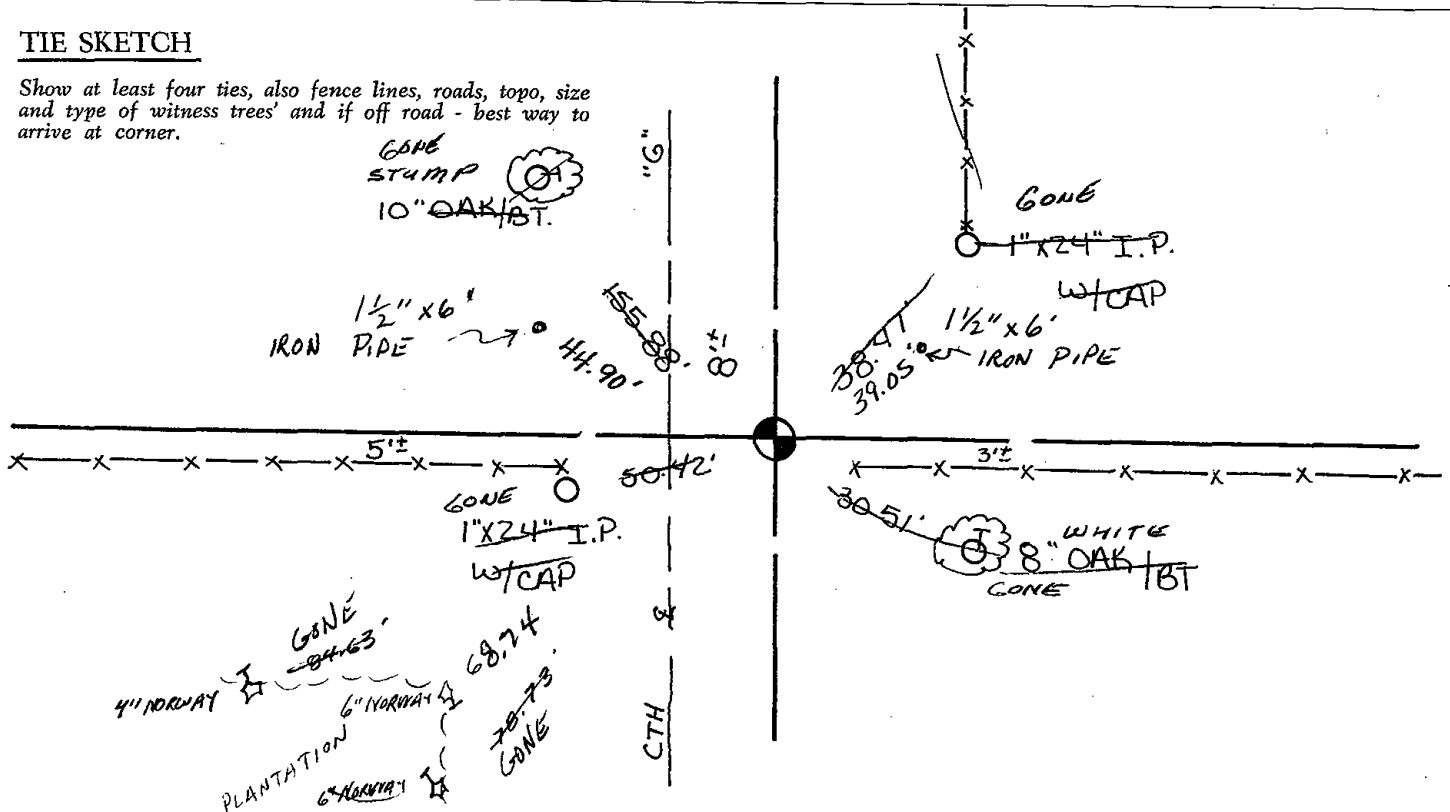 TIE SKETCH
Show at least four ties, also fence lines, roads, topo, size
and type of witness trees' and if off road - best way to
arrive at corner.
GONE
STUMP
10" OAK/BT.
"G"
GONE
1"x24" I.P.
W/CAP
1 1/2" x 6'
IRON PIPE
44.90'
155.88'
8'±
38.41'
39.05'
1 1/2" x 6'
IRON PIPE
5'±
50.42'
3'±
GONE
1"x24" I.P.
W/CAP
30.51'
WHITE
8" OAK/BT
GONE
GONE
84.63'
68.74
4" NORWAY
6" NORWAY
78.73'
GONE
PLANTATION
6" NORWAY
CTH